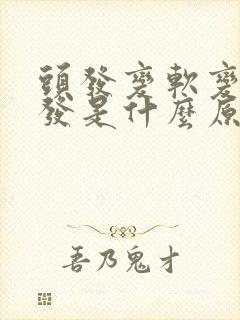 頭發變軟變
發是什麼原
吾乃鬼才